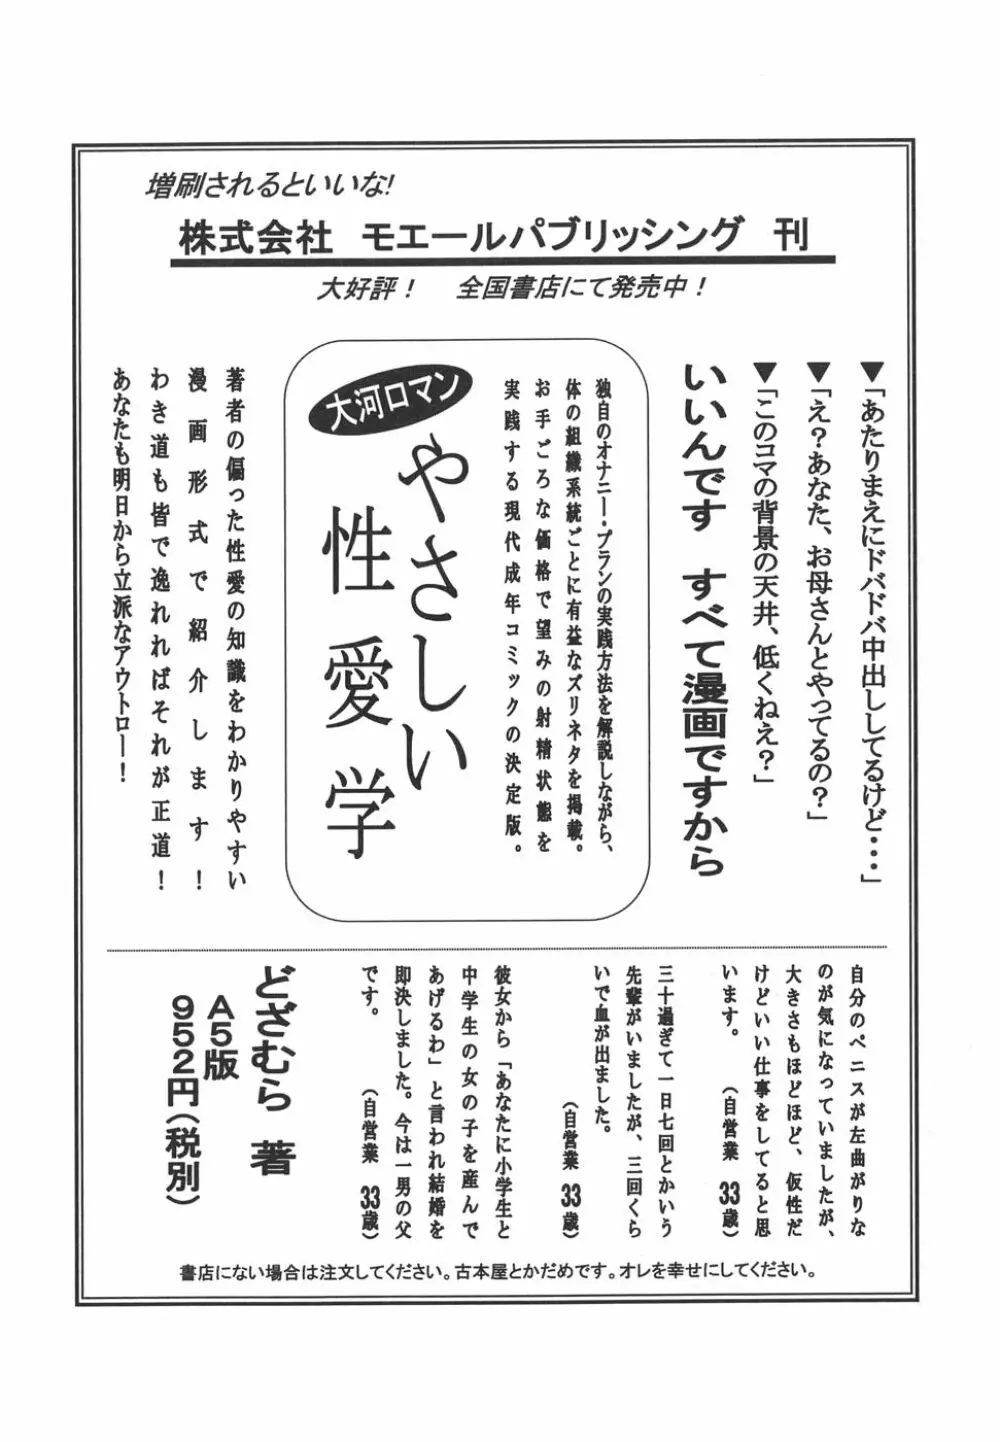 増刷されるといいな!
株式会社　モエールパブリッシング　刊
大好評！　全国書店にて発売中！
▼「あたりまえにドバドバ中出ししてるけど・・・」
▼「え？あなた、お母さんとやってるの？」
▼「このコマの背景の天井、低くねえ？」
いいんです　すべて漫画ですから
独自のオナニー・プランの実践方法を解説しながら、
体の組織系統ごとに有益なズリネタを掲載。
お手ごろな価格で望みの射精状態を
実践する現代成年コミックの決定版。
大河ロマン
やさしい
性愛学
著者の偏った性愛の知識をわかりやすい
漫画形式で紹介します！
わき道も皆で逸れればそれが正道！
あなたも明日から立派なアウトロー！
自分のペニスが左曲がりな
のが気になっていましたが、
大きさもほどほど、仮性だ
けどいい仕事をしてると思
います。　（自営業　33歳）
三十過ぎて一日七回とかいう
先輩がいましたが、三回くら
いで血が出ました。
（自営業　33歳）
彼女から「あなたに小学生と
中学生の女の子を産んで
あげるわ」と言われ結婚を
即決しました。今は一男の父
です。　（自営業　33歳）
どざむら　著
A5版
952円（税別）
書店にない場合は注文してください。古本屋とかだめです。オレを幸せにしてください。